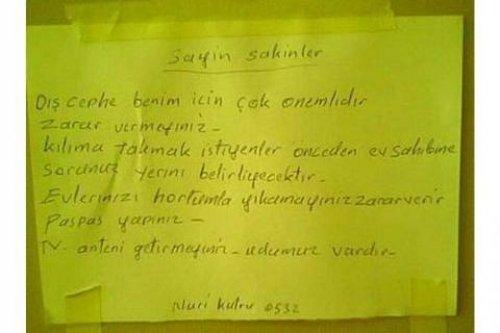 Sayin sakinler
Dış cephe benim icin çok onemlidir
Zarar vermeyiniz -
Kılıma takmak istiyenler onceden ev sahibine
Sorunuz yerini belirliyecektir -
Evlerinizi hortumla yıkamayınız zarar verir
Paspas yapınız -
TV - anteni getirmeyiniz - udumuz vardır -
Nuri 0532